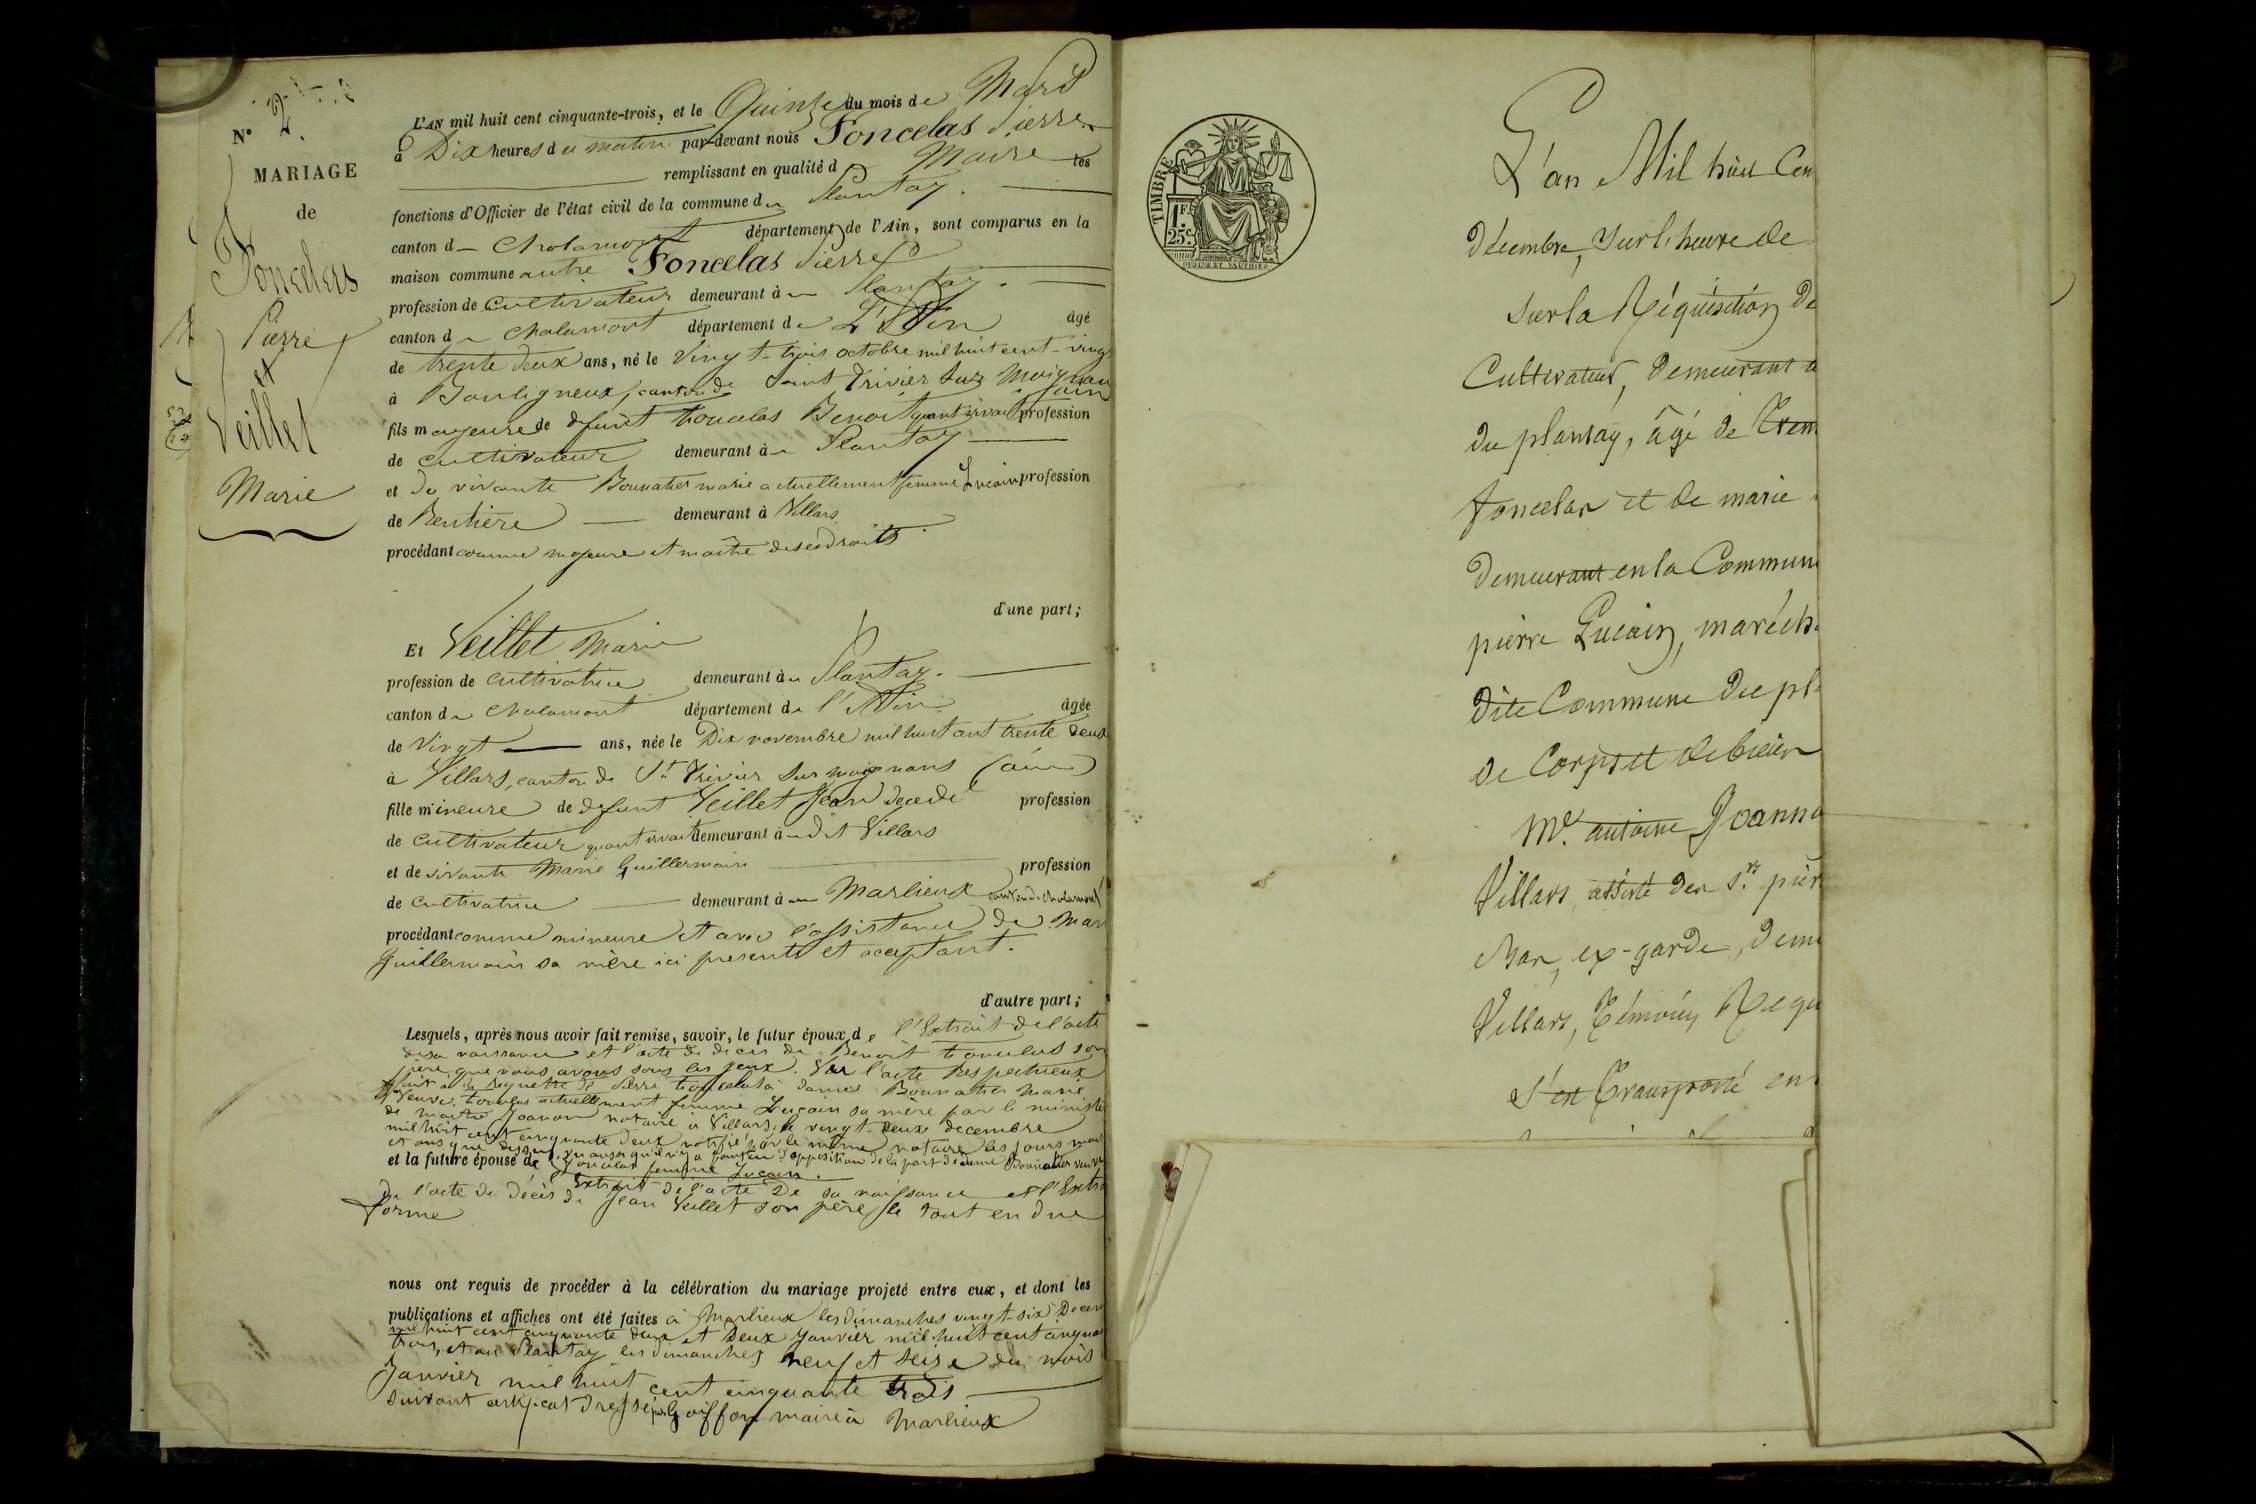 N° 2.
MARIAGE
de
Foncelas
Pierre
et
Veillet
Marie
L'AN mil huit cent cinquante-trois, et le Quinze du mois de Mars
à Dix heures du matin par-devant nous Foncelas Pierre
remplissant en qualité de Maire les
fonctions d'Officier de l'état civil de la commune du Plantay.
canton de Chalamont département de l'Ain, sont comparus en la
maison commune autre Foncelas Pierre
profession de cultivateur demeurant à Plantay.
canton de chalamont département de L'Ain âgé
de trente deux ans, né le vingt-trois octobre mil huit cent-vingt
à Bouligneux, canton de Saint Trivier sur Moignan
fils majeure de défunt foncelas Benoit quant vivait profession
de cultivateur demeurant à Plantay
et de vivante Bounatier marie actuellement femme Lucain profession
de Rentière demeurant à Villars
procédant comme majeure et maître de ses droits.
d'une part;
Et Veillet Marie
profession de cultivatrice demeurant à Plantay.
canton de chalamont département de l'Ain âgée
de vingt ans, née le Dix novembre mil huit cent trente deux
à Villars, canton de St Trivier sur moignans (ain)
fille mineure de defunt Veillet Jean decedé profession
de cultivateur quant vivait demeurant à dit Villars
et de vivante Marie Guillermain profession
de cultivatrice demeurant à Marlieux canton de chalamont
procédant comme mineure et avec l'assistance de Marie
Guillermain sa mère ici presente et acceptant.
d'autre part;
Lesquels, après nous avoir fait remise, savoir, le futur époux de l'Extrait de l'acte
de sa naissance et l'acte de deces de Benoit foncelas son
père, que nous avons sous les yeux. Vu l'acte Respectueux
fait à la Requette de Pierre foncelas à dame Bounatier Marie
Veuve foncelas actuellement femme Lucain sa mère par le ministère
de maitre Joanon notaire à Villars, le vingt-deux decembre
mil huit cent cinquante deux notifié par le même notaire les jours mois
et ans que dessus, vu aussi qu'il n'y a d'opposition de la part de dame Bounatier veuve
et la future épouse de foncelas femme Lucain.
l'Extrait de l'acte De sa naissance et l'Extrait
de l'acte de décès de Jean Veillet son père, le tout en due
forme
nous ont requis de procéder à la célébration du mariage projeté entre eux, et dont les
publications et affiches ont été faites à Marlieux les dimanches vingt-six Decembre
mil huit cent cinquante deux et Deux Janvier mil huit cent cinquante
trois, et au Plantay les dimanches neuf et seize du mois
Janvier mil huit cent cinquante trois
suivant certificat dressé par Goiffon maire à Marlieux
TIMBRE
1F.
25c.
L'an Mil huit Cen
Décembre, sur l'heure de
sur la Réquisition De
Cultivateur, Demeurant a
du plantay, âgé de Tren
foncelas et de marie
Demeurant en la Commun
pierre Lucain, maréch
Dite Commune Du pl
de Corps et de biens
Me. antoine Joanno
Villars, assisté des Srs pier
ex-garde, Dem
Villars, Témoins Requ
s'est Transporté en